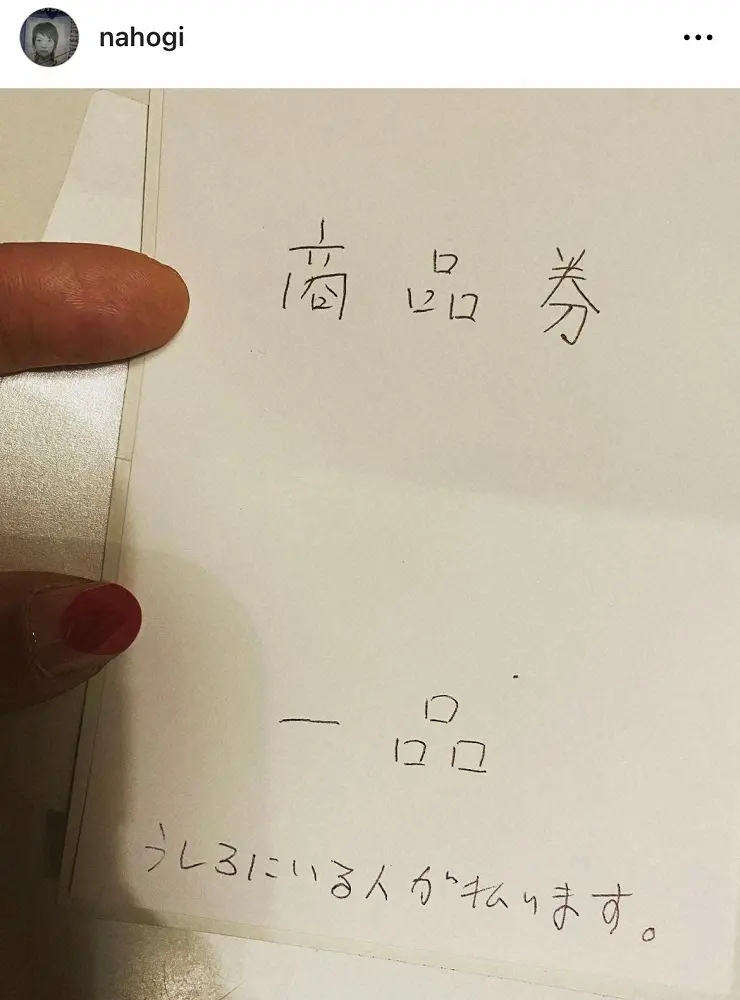 nahogi
商品券
一品
うしろにいる人が払います。